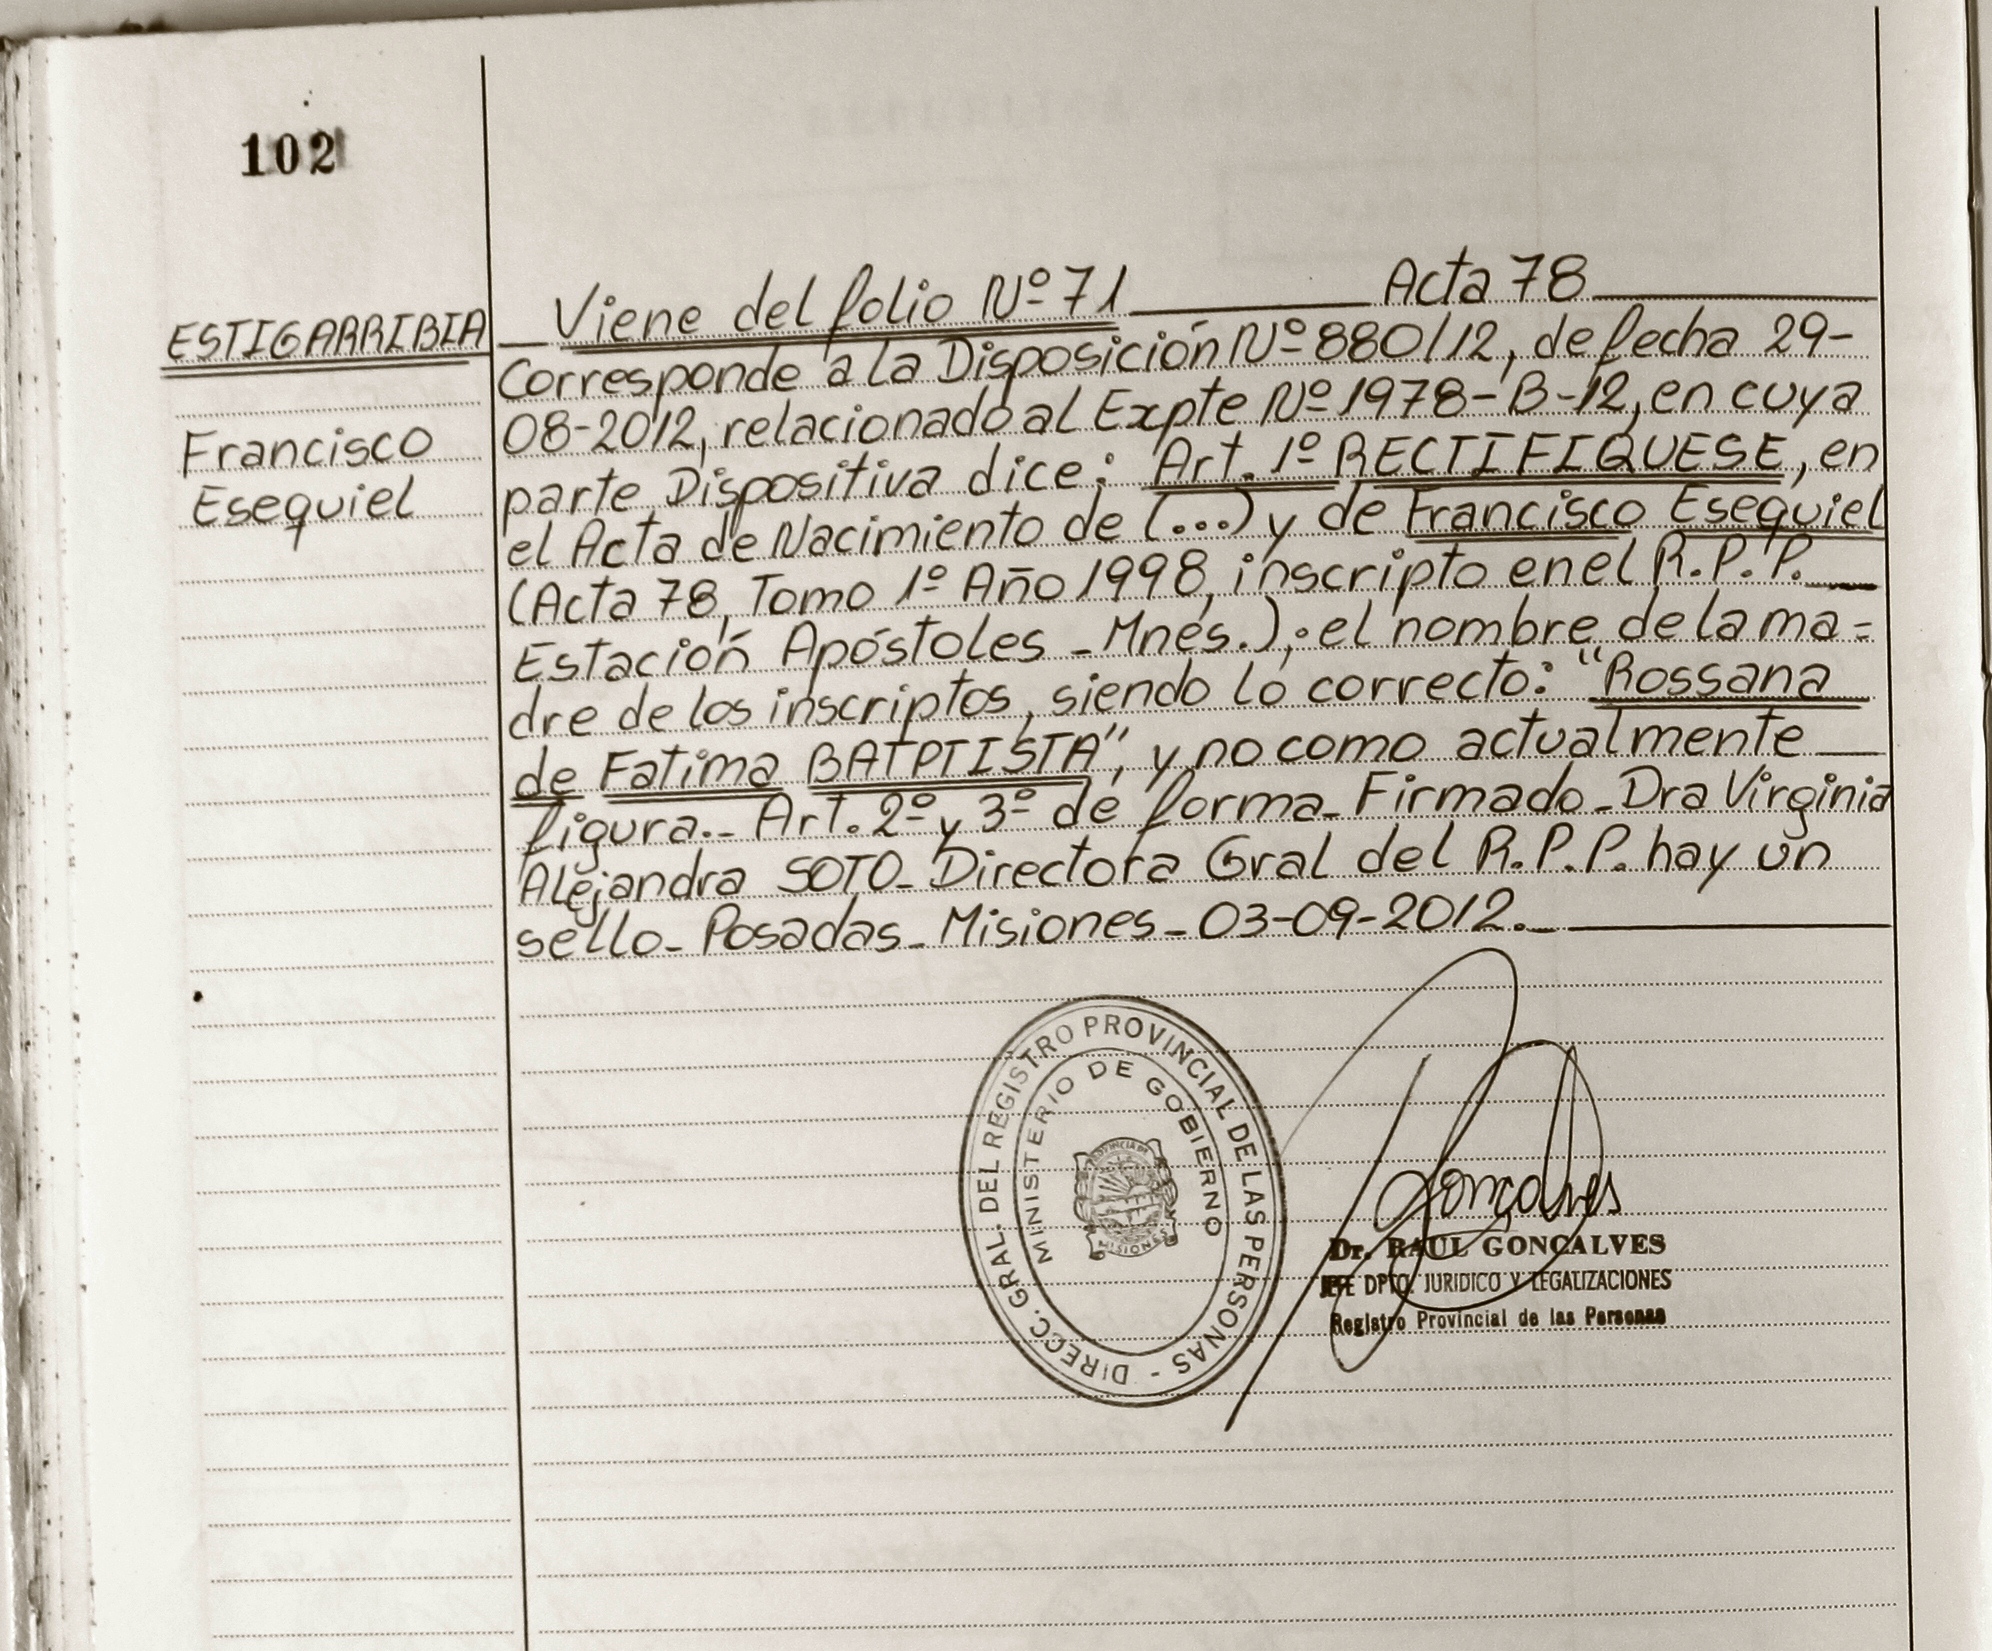 102
ESTIGARRIBIA
Francisco
Esequiel
Viene del folio Nº 71 Acta 78
Corresponde a la Disposición Nº 880/12, de fecha 29-
08-2012, relacionado al Expte Nº 1978-B-12, en cuya
parte Dispositiva dice: Art. 1º RECTIFIQUESE, en
el Acta de Nacimiento de (...) y de Francisco Esequiel
(Acta 78, Tomo 1º Año 1998, inscripto en el R.P.P.
Estación Apóstoles - Mnes.); el nombre de la ma=
dre de los inscriptos, siendo lo correcto: "Rossana
de Fatima BATPTISTA", y no como actualmente
figura.- Art. 2º y 3º de forma- Firmado- Dra Virginia
Alejandra SOTO- Directora Gral del R.P.P. hay un
sello- Posadas- Misiones- 03-09-2012.-
DIRECC. GRAL. DEL REGISTRO PROVINCIAL DE LAS PERSONAS -
MINISTERIO DE GOBIERNO
PROVINCIA DE
MISIONES
Gonçalves
Dr. RAUL GONÇALVES
JEFE DPTO. JURIDICO Y LEGALIZACIONES
Registro Provincial de las Personas